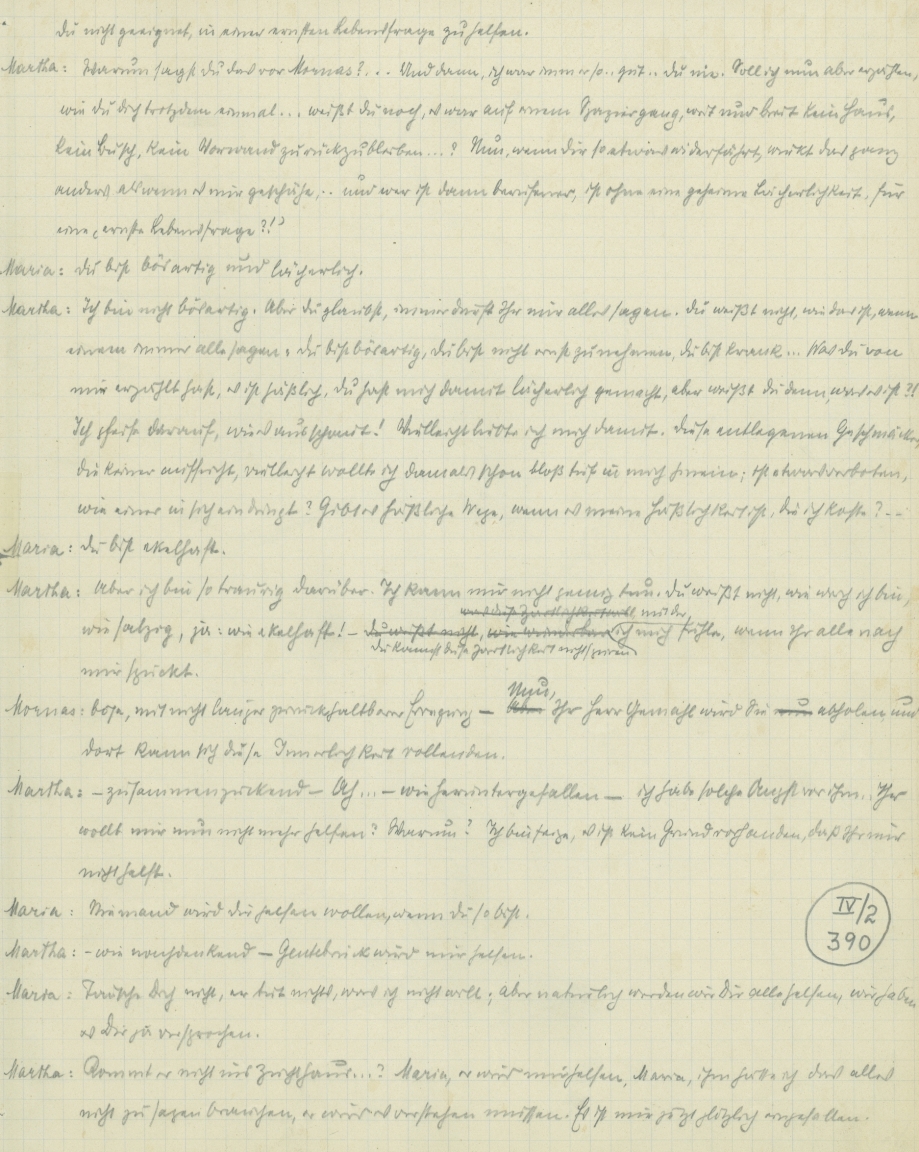 du nicht geeignet, in einer ernsten Lebensfrage zu helfen.
Martha: Warum sagst du das vor Mornas?... Und dann, ich war immer so.. gut.. du nie. Soll ich nun aber erzählen,
wie du dich trotzdem einmal... weißt du noch, es war auf einem Spaziergang, weit und breit kein Haus,
kein Busch, kein Vorwand zurückzubleiben...? Nun, wenn dir so etwas widerfährt, wirkt das ganz
anders als wenn es mir geschähe,.. und wer ist dann berufener, ist ohne eine geheime Lächerlichkeit, für
eine „ernste Lebensfrage?!"
Maria: Du bist bösartig und lächerlich.
Martha: Ich bin nicht bösartig. Aber du glaubst, immer dürft Ihr mir alles sagen. Du weißt nicht, wie das ist, wenn
einem immer alle sagen: du bist bösartig, du bist nicht ernst zu nehmen, du bist krank... Was du von
mir erzählt hast, es ist häßlich, du hast mich damit lächerlich gemacht, aber weißt du denn, was es ist?!
Ich pfeife darauf, wie es ausschaut! Vielleicht liebte ich mich damit. Diese entlegenen Geschmäcke,
die keiner aufsucht, vielleicht wollte ich damals schon bloß tief in mich hinein; ist etwas verboten,
wie einer in sich eindringt? Gibt es häßliche Wege, wenn es meine Häßlichkeit ist, die ich koste?--
Maria: Du bist ekelhaft.
Martha: Aber ich bin so traurig darüber. Ich kann mir nicht genug tun. Du weißt nicht, wie weich ich bin,
was diese Zärtlichkeit mit der
wie salzig, ja: wie ekelhaft! – du weißt nicht, wie wunderbar ich mich fühle, wenn Ihr alle nach
du kannst diese Zärtlichkeit nicht spüren
mir spuckt.
Nun,
Mornas: böse, mit nicht länger zurückhaltbarer Erregung – Aber Ihr Herr Gemahl wird Sie nun abholen und
dort kann sich diese Innerlichkeit vollenden.
Martha: – zusammenzuckend – Ach... – wie heruntergefallen – ich habe solche Angst vor ihm.. Ihr
wollt mir nun nicht mehr helfen? Warum? Ich bin feige, es ist kein Grund vorhanden, daß Ihr mir
nicht helft.
Maria: Niemand wird dir helfen wollen, wenn du so bist.
Martha: – wie nachdenkend – wird mir helfen.
Maria: Täusche Dich nicht, er tut nichts, was ich nicht will; aber natürlich werden wir Dir alle helfen, wir haben
es Dir ja versprochen.
Martha: Kommt er nicht ins Zuchthaus...? Maria, er wird mir helfen, Maria, ihm hätte ich das alles
nicht zu sagen brauchen, er wird es verstehen müssen. Es ist mir jetzt plötzlich eingefallen.
IV/2
390